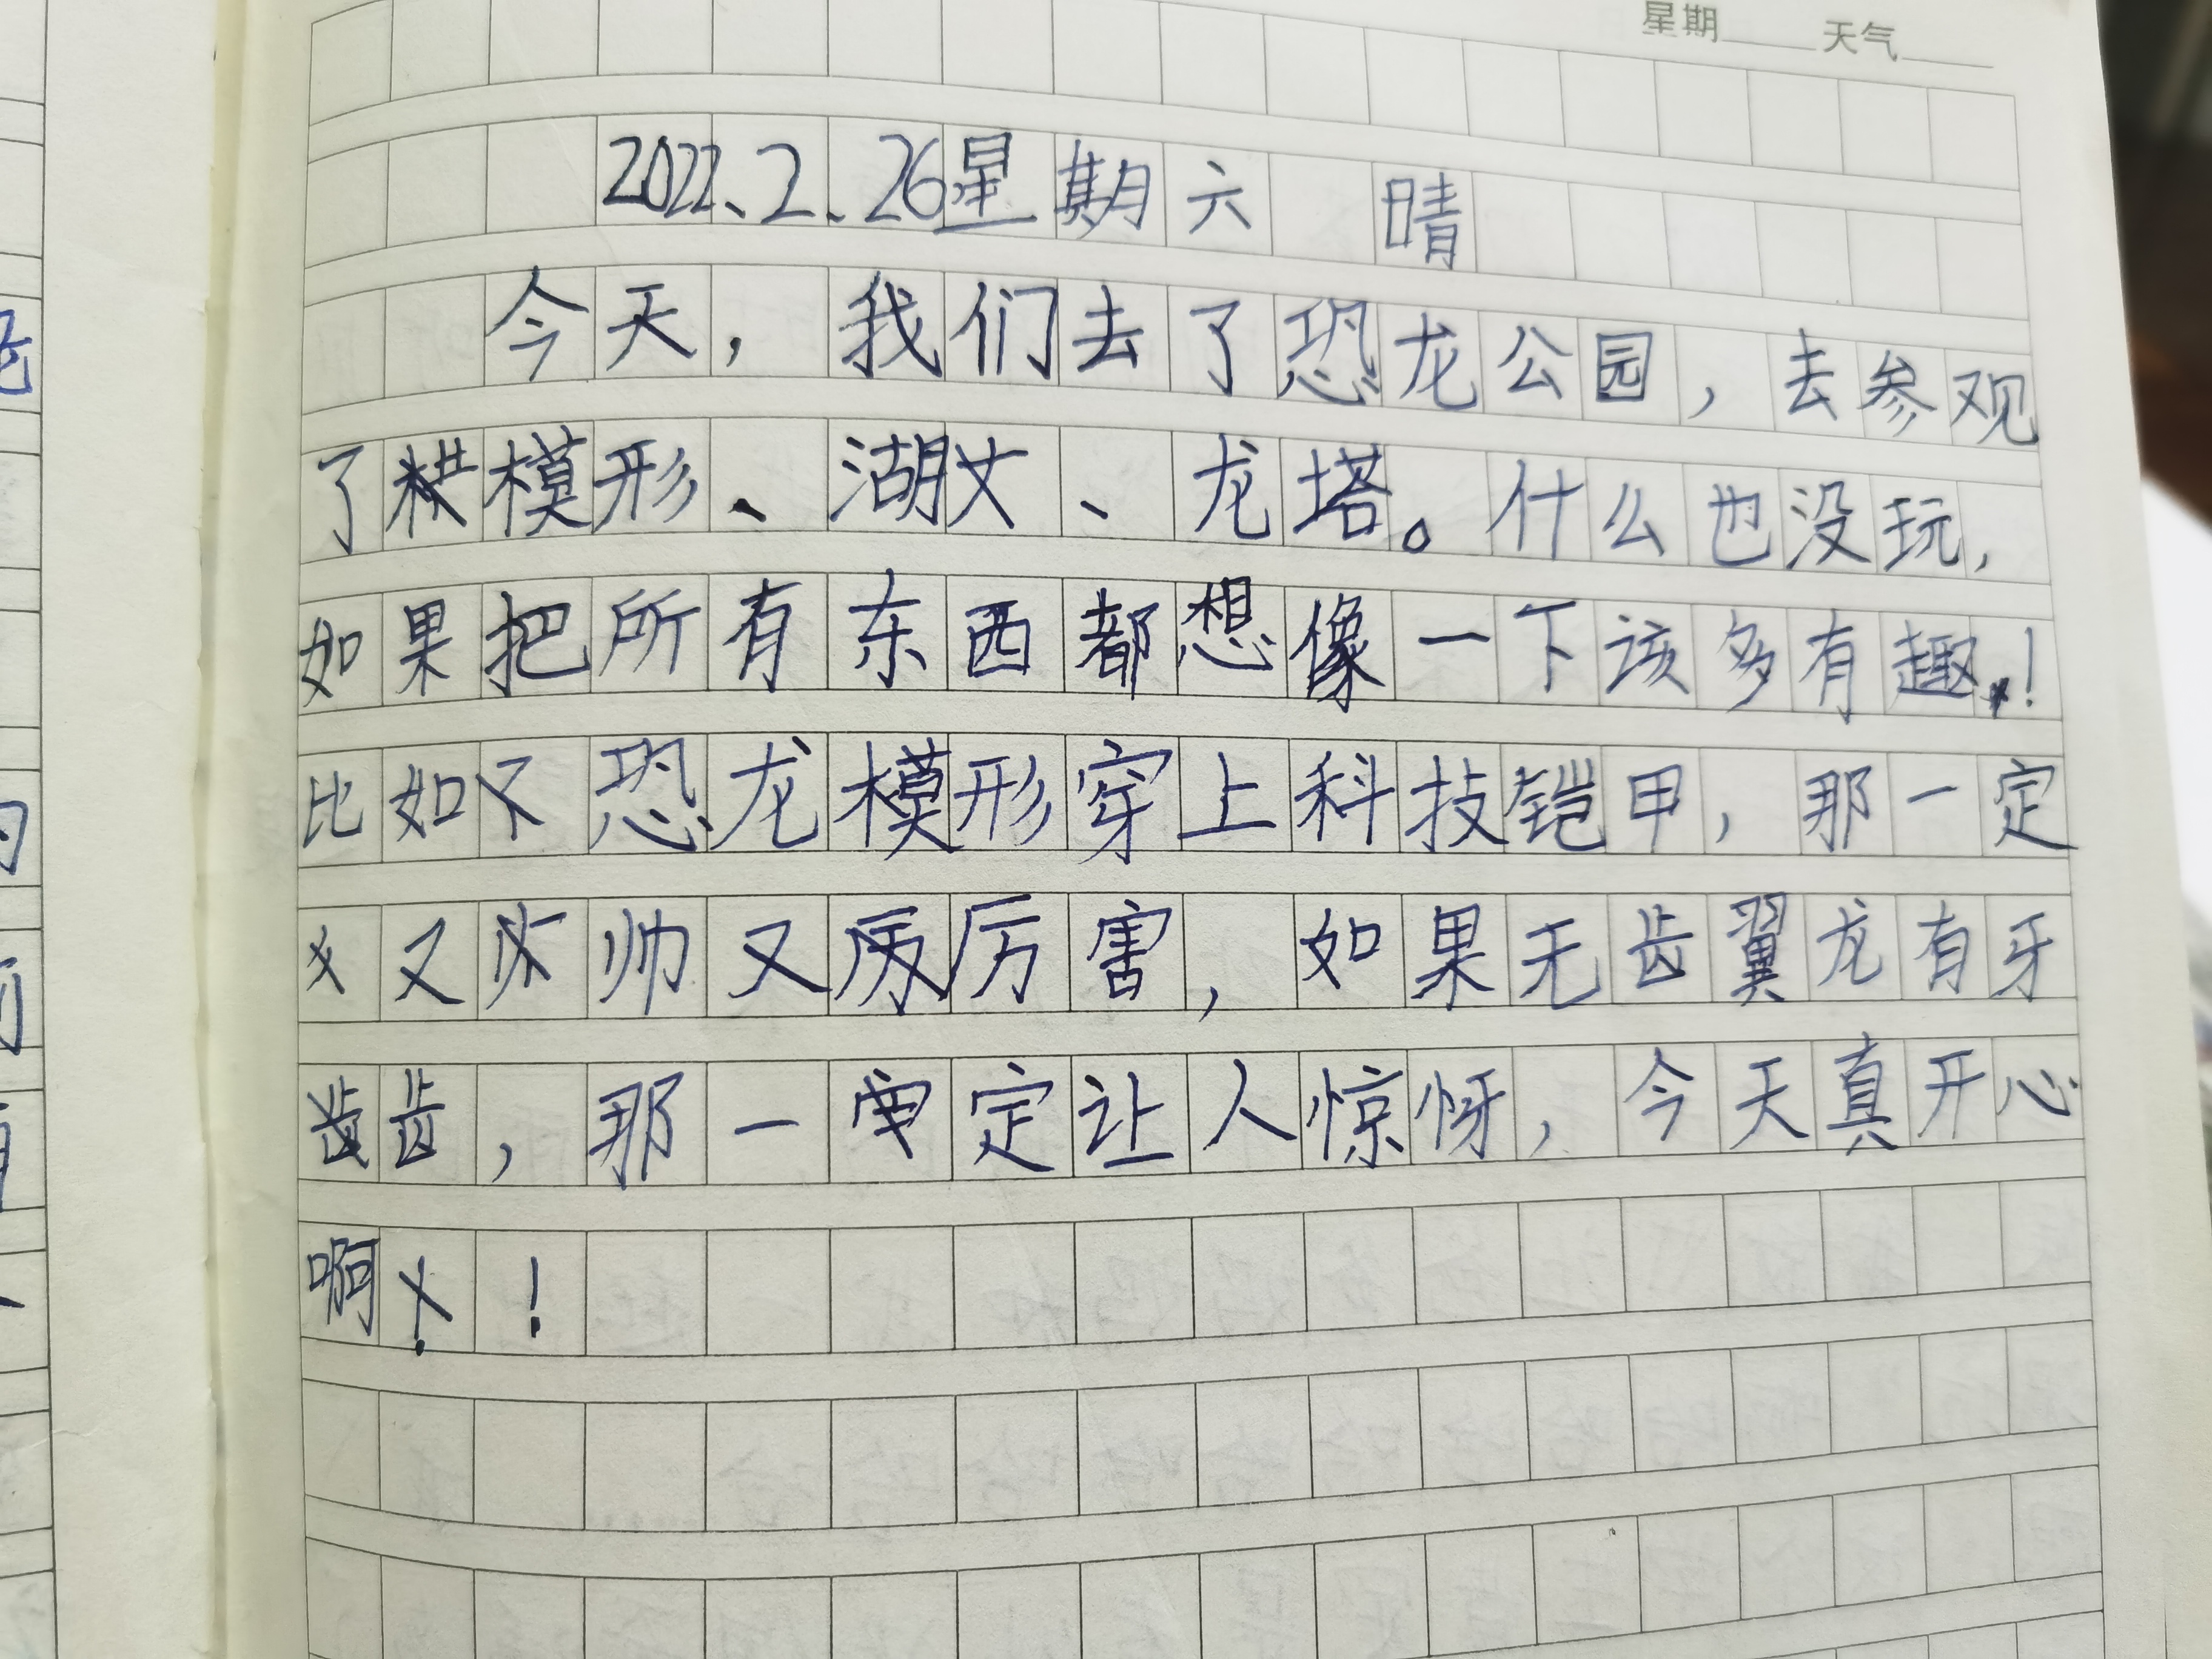 星期 天气
2022.2.26星期六 晴
今天，我们去了恐龙公园，去参观
了模形、湖、龙塔。什么也没玩，
如果把所有东西都想像一下该多有趣！
比如恐龙模形穿上科技铠甲，那一定
又帅又厉害，如果无齿翼龙有牙
齿，那一定让人惊讶，今天真开心
啊！